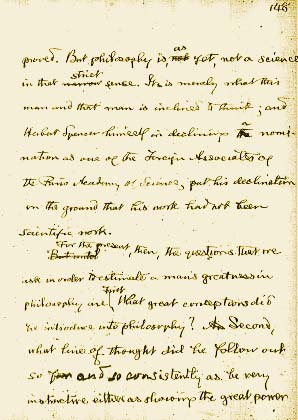 148
proved. But philosophy is as yet, not a science
in that strict sense. It is merely what this
man and that man is inclined to think; and
Herbert Spencer himself in declining the nomi-
nation as one of the Foreign Associates of
the Paris Academy of Science, put his declination
on the ground that his work had not been
scientific work.
For the present, then, the questions that we
ask in order to estimate a man's greatness in
philosophy are, First, What great conceptions did
he introduce into philosophy? Second,
what line of thought did he follow out
so and so consistently as he very
instinctive either as showing the great power